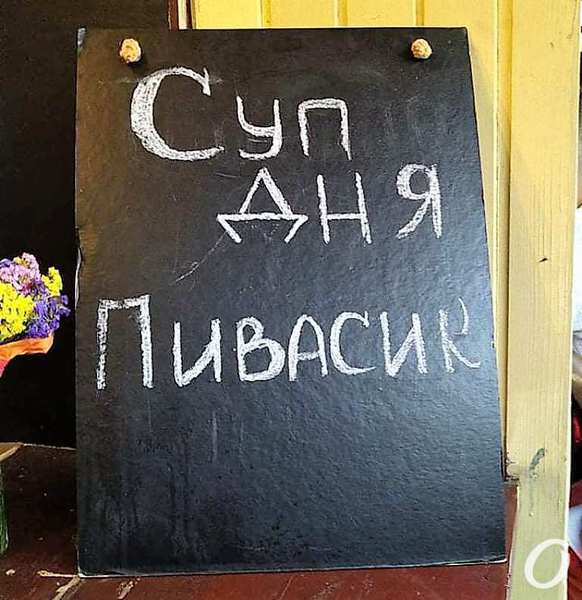 Суп
Дня
Пивасик
O